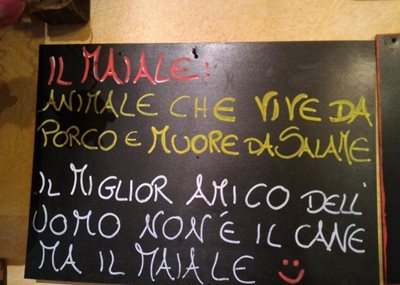 IL MAIALE:
ANIMALE CHE VIVE DA
PORCO E MUORE DA SALAME
IL MIGLIOR AMICO DELL'
UOMO NON È IL CANE
MA IL MAIALE